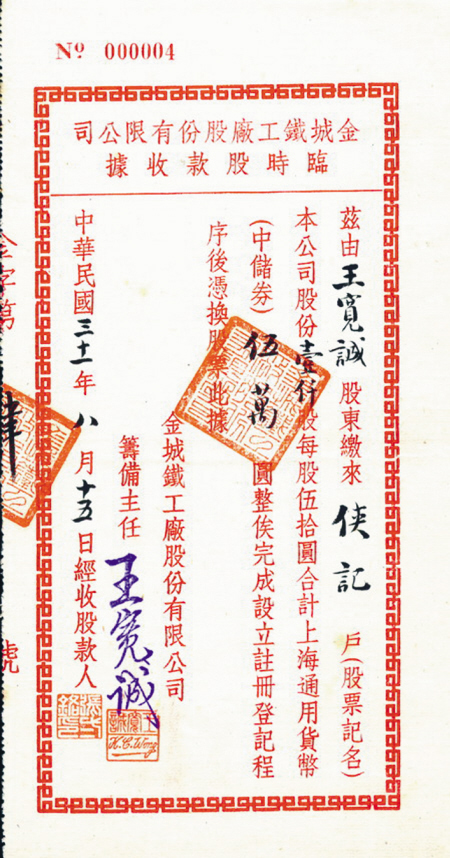 № 000004
金城鐵工廠股份有限公司
臨時股款收據
茲由王寬誠股東繳來俠記戶(股票記名)
本公司股份壹仟股每股伍拾圓合計上海通用貨幣
(中儲券)伍萬圓整俟完成設立註冊登記程
序後憑換股票此據
金城鐵工廠股份有限公司
籌備主任 王寬誠
K. C. Wong
中華民國三十一年八月十五日經收股款人
金字第
肆
號